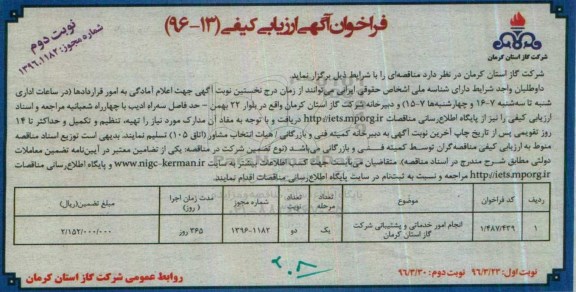 نوبت دوم
شماره مجوز: ۱۳۹۶.۱۱۸۲
فراخوان آگهی ارزیابی کیفی (۱۳-۹۶)
شرکت گاز استان کرمان
شرکت گاز استان کرمان در نظر دارد مناقصه‌ای را با شرایط ذیل برگزار نماید.
داوطلبان واجد شرایط دارای شناسه ملی اشخاص حقوقی ایرانی می‌توانند از زمان درج نخستین نوبت آگهی جهت اعلام آمادگی به امور قراردادها (در ساعات اداری
شنبه تا سه‌شنبه ۷-۱۶ و چهارشنبه‌ها ۷-۱۵) و دبیرخانه شرکت گاز استان کرمان واقع در بلوار ۲۲ بهمن - حد فاصل سه‌راه ادیب با چهارراه شعبانیه مراجعه و اسناد
ارزیابی کیفی را نیز از پایگاه اطلاع‌رسانی مناقصات http://iets.mporg.ir دریافت و با توجه به مفاد آن مدارک مورد نیاز را تهیه، تنظیم و تکمیل و حداکثر تا ۱۴
روز تقویمی پس از تاریخ چاپ آخرین نوبت آگهی به دبیرخانه کمیته فنی و بازرگانی / هیات انتخاب مشاور (اتاق ۱۰۵) تسلیم نمایند. بدیهی است توزیع اسناد مناقصه
منوط به ارزیابی کیفی مناقصه‌گران توسط کمیته فنی و بازرگانی می‌باشد. (نوع تضمین شرکت در مناقصه: یکی از تضامین معتبر در آیین‌نامه تضمین معاملات
دولتی مطابق شرح مندرج در اسناد مناقصه). متقاضیان می‌بایست جهت کسب اطلاعات بیشتر به سایت www.nigc-kerman.ir و پایگاه اطلاع‌رسانی مناقصات
http://iets.mporg.ir مراجعه و نسبت به ثبت‌نام در سایت پایگاه اطلاع‌رسانی مناقصات اقدام نمایند.
ردیف کد فراخوان موضوع تعداد مرحله تعداد نوبت شماره مجوز مدت زمان اجرا (روز) مبلغ تضمین (ریال)
۱ ۱/۴۸۷/۴۳۹ انجام امور خدماتی و پشتیبانی شرکت گاز استان کرمان یک دو ۱۳۹۶-۱۱۸۲ ۳۶۵ روز ۲/۱۵۲/۰۰۰/۰۰۰
نوبت اول: ۹۶/۳/۲۳ نوبت دوم: ۹۶/۳/۳۰
۲۰۸
روابط عمومی شرکت گاز استان کرمان